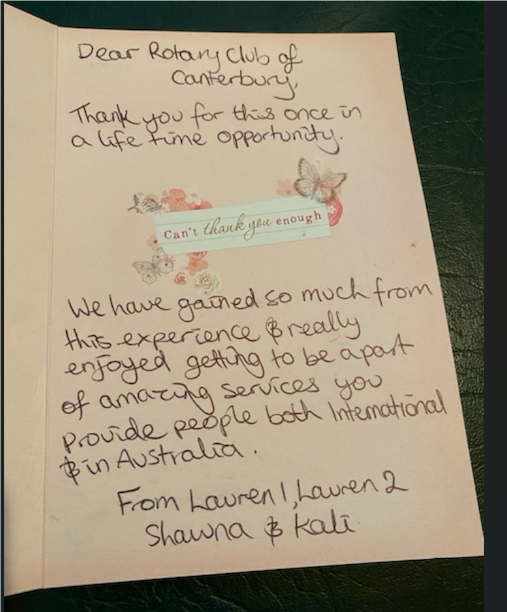 Dear Rotary Club of
Canterbury,
Thank you for this once in
a life time opportunity.
Can't thank you enough
We have gained so much from
this experience & really
enjoyed getting to be apart
of amazing services you
provide people both International
& in Australia.
From Lauren 1, Lauren 2
Shawna & Kali